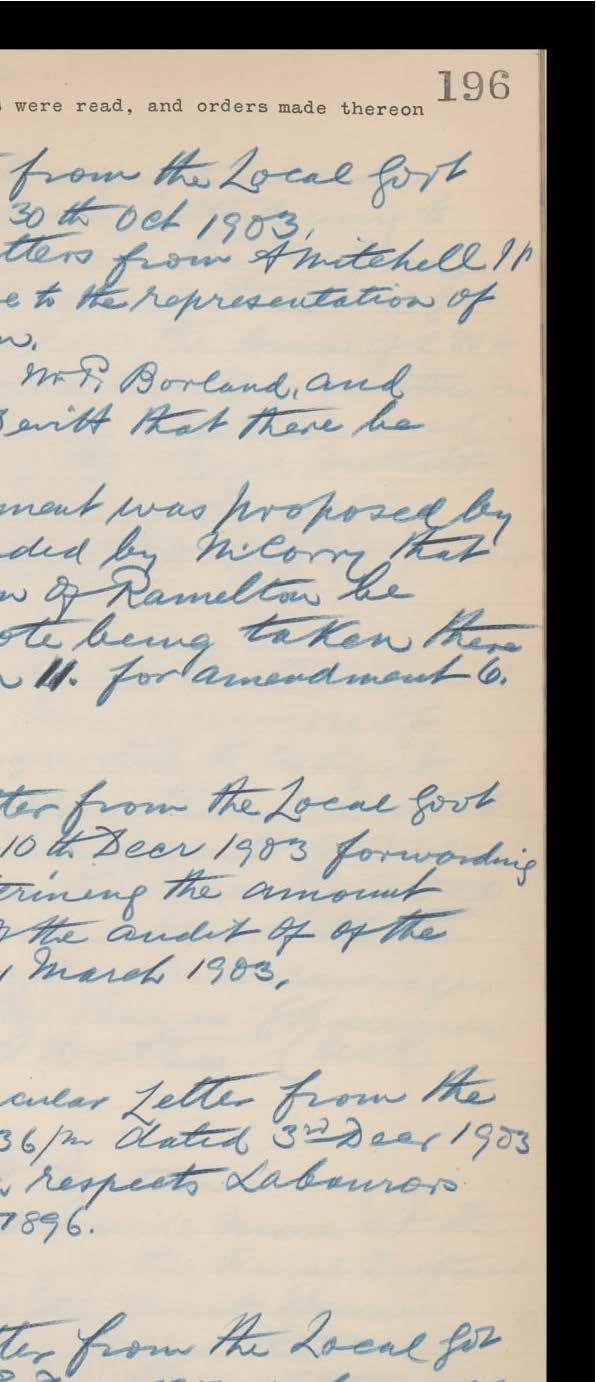 196
s were read, and orders made thereon
from the Local Govt
30th Oct 1903,
tters from A Mitchell
e to the representation of
n.
Mr. P. Borland, and
Devitt that there be
ment was proposed by
ded by McCorry that
n of Ramelton be
ote being taken there
n 11. for amendment 6.
tter from the Local Govt
10th Decr 1903 forwarding
trineng the amount
g the audit of of the
March 1903,
cular Letter from the
36/m dated 3rd Decr 1903
respects Labourors
1896.
tter from the Local Got